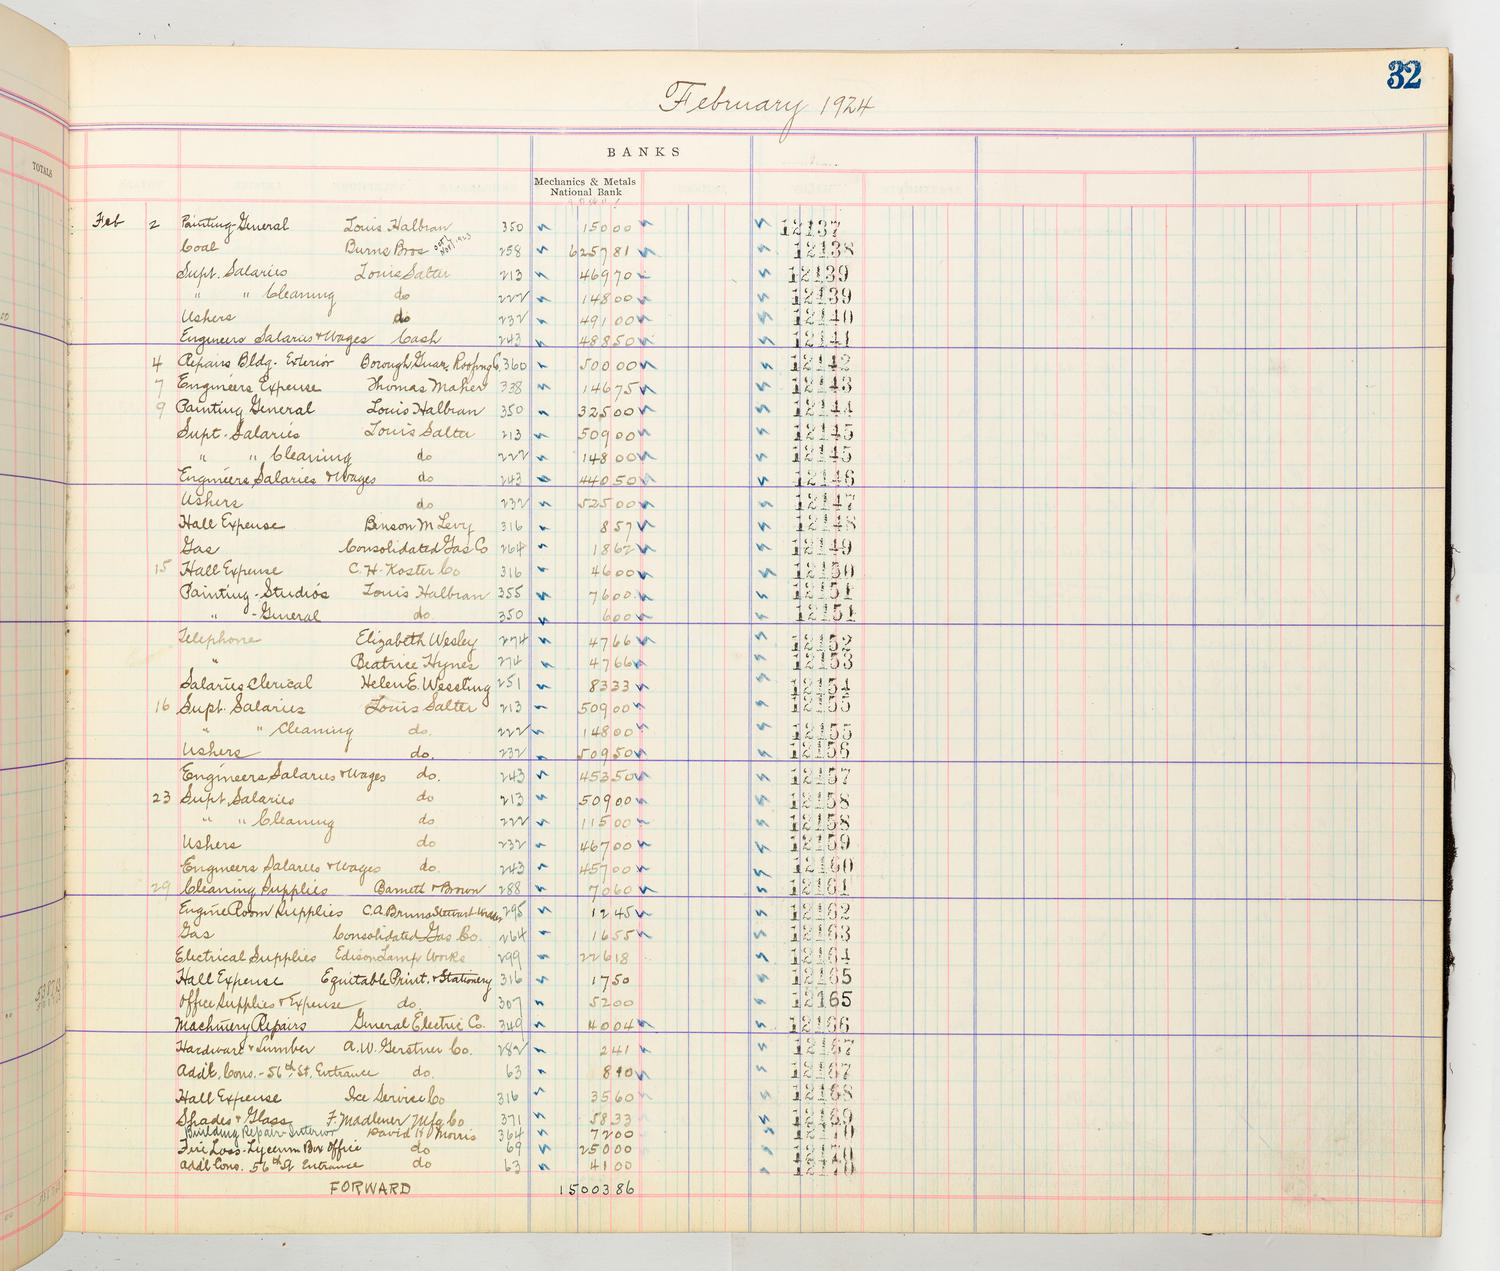 32
February 1924
TOTALS
BANKS
Mechanics & Metals
National Bank
Feb 2 Painting-General Louis Halbran 350 150 00 12137
Coal Burns Bros Nov/1923 258 6257 81 12138
Supt. Salaries Louis Salter 213 469 70 12139
" " Cleaning do 222 148 00 12139
Ushers do 232 491 00 12140
Engineers Salaries & Wages Cash 243 488 50 12141
4 Repairs Bldg. Exterior Borough Guar. Roofing C. 360 500 00 12142
7 Engineers Expense Thomas Maher 338 146 75 12143
9 Painting General Louis Halbran 350 325 00 12144
Supt. Salaries Louis Salter 213 509 00 12145
" " Cleaning do 222 148 00 12145
Engineers Salaries & Wages do 243 440 50 12146
Ushers do 232 525 00 12147
Hall Expense Benson M Levy 316 8 57 12148
Gas Consolidated Gas Co 264 18 62 12149
15 Hall Expense C. H. Koster Co 316 46 00 12150
Painting - Studios Louis Halbran 355 76 00 12151
" - General do. 350 6 00 12151
Telephone Elizabeth Wesley 274 47 66 12152
" Beatrice Hynes 274 47 66 12153
Salaries Clerical Helen E. Wessting 251 83 33 12154
16 Supt. Salaries Louis Salter 213 509 00 12155
" " Cleaning do. 222 148 00 12155
Ushers do. 232 509 50 12156
Engineers Salaries & Wages do. 243 453 50 12157
23 Supt. Salaries do 213 509 00 12158
" " Cleaning do 222 115 00 12158
Ushers do 232 467 00 12159
Engineers Salaries & Wages do. 243 457 00 12160
29 Cleaning Supplies Barnett & Brown 288 70 60 12161
Engine Room Supplies C.A. Bruns 295 12 45 12162
Gas Consolidated Gas Co. 264 16 55 12163
Electrical Supplies Edison Lamp Works 299 226 18 12164
Hall Expense Equitable Print. & Stationery 316 17 50 12165
Office Supplies & Expense do. 307 52 00 12165
Machinery Repairs General Electric Co. 349 40 04 12166
Hardware & Lumber A. W. Gerstner Co. 282 2 41 12167
Add'l. Cons. - 56th St. Entrance do. 63 8 10 12167
Hall Expense Ice Service Co 316 35 60 12168
Shades & Glass F. Madlener Mfg Co 371 58 33 12169
Building Repair-Interior David H Morris 364 72 00 12170
Fire Loss-Lyceum Box Office do 69 250 00 12170
Add'l Cons. 56th St Entrance do 63 41 00 12170
FORWARD 15003 86